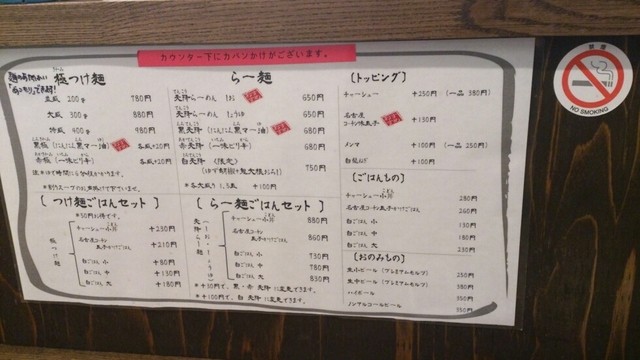 カウンター下にカバンかけがございます。
極つけ麺
並盛 200g 780円
大盛 300g 880円
特盛 400g 980円
黒極(にんにく黒マー油) 各盛+20円
赤極(一味ピリ辛) 各盛+20円
注※ゆで時間に
※割りスープのお声掛け下さいませ。
らー麺
650円
650円
(にんにく黒マー油) 680円
(一味ピリ辛) 680円
(限定)
750円
※各大盛り 1.5玉 +100円
[トッピング]
チャーシュー +250円 (一品 380円)
名古屋
コーチン味玉子 +130円
メンマ +100円 (一品 250円)
白髪ねぎ +100円
[ごはんもの]
チャーシュー小丼 280円
名古屋コーチン
玉子かけごはん 260円
白ごはん 小 130円
白ごはん 中 180円
白ごはん 大 230円
[おのみもの]
生小ビール (プレミアムモルツ) 250円
生中ビール (プレミアムモルツ)
ハイボール
ノンアルコールビール
[つけ麺ごはんセット]
※50円お得です。
極つけ麺
チャーシュー小丼 +230円
名古屋コーチン
玉子かけごはん +210円
白ごはん 小 +80円
白ごはん 中 +130円
白ごはん 大 +180円
[らー麺ごはんセット]
チャーシュー小丼 880円
名古屋コーチン
玉子かけごはん 860円
白ごはん 小 730円
白ごはん 中 780円
白ごはん 大 830円
禁煙
NO SMOKING